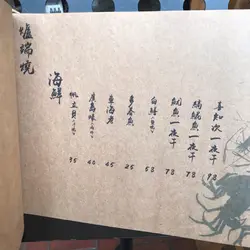 爐端燒
海鮮
帆立貝 95
廣島蠔 40
車海老 45
多春魚 25
白鱔 58
魷魚一夜干 78
魚一夜干 78
喜知次一夜干 98